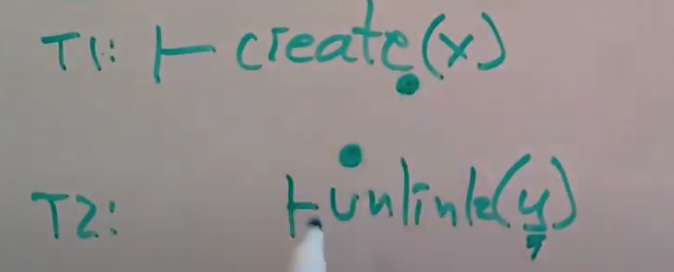 T1: ⊢ create(x)
T2: ⊢ unlink(y)